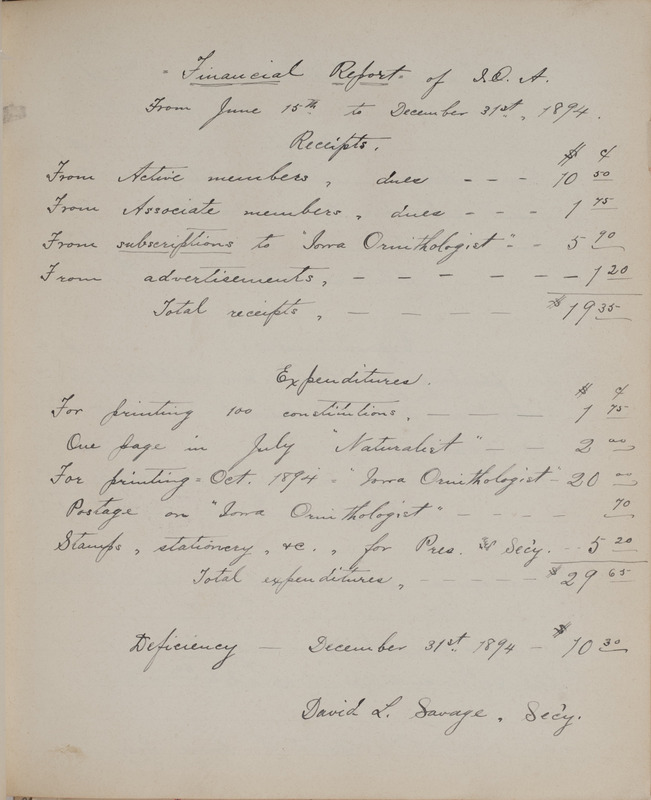 "Financial Report" of I.O.A.
From June 15th to December 31st, 1894.
Receipts.
$ ¢
From Active members, dues - - - 10 50
From Associate members, dues - - - 1 75
From subscriptions to "Iowa Ornithologist" - - 5 90
From advertisements, - - - - - - 1 20
Total receipts, - - - - $19 35
Expenditures.
$ ¢
For printing 100 constitutions, - - - 1 75
One page in July "Naturalist" - - 2 00
For printing = Oct. 1894 = "Iowa Ornithologist" - 20 00
Postage on "Iowa Ornithologist" - - - - 70
Stamps, stationery, &c., for Pres. & Sec'y. - - 5 20
Total expenditures, - - - - $29 65
Deficiency — December 31st. 1894 - $10 30
David L. Savage, Sec'y.